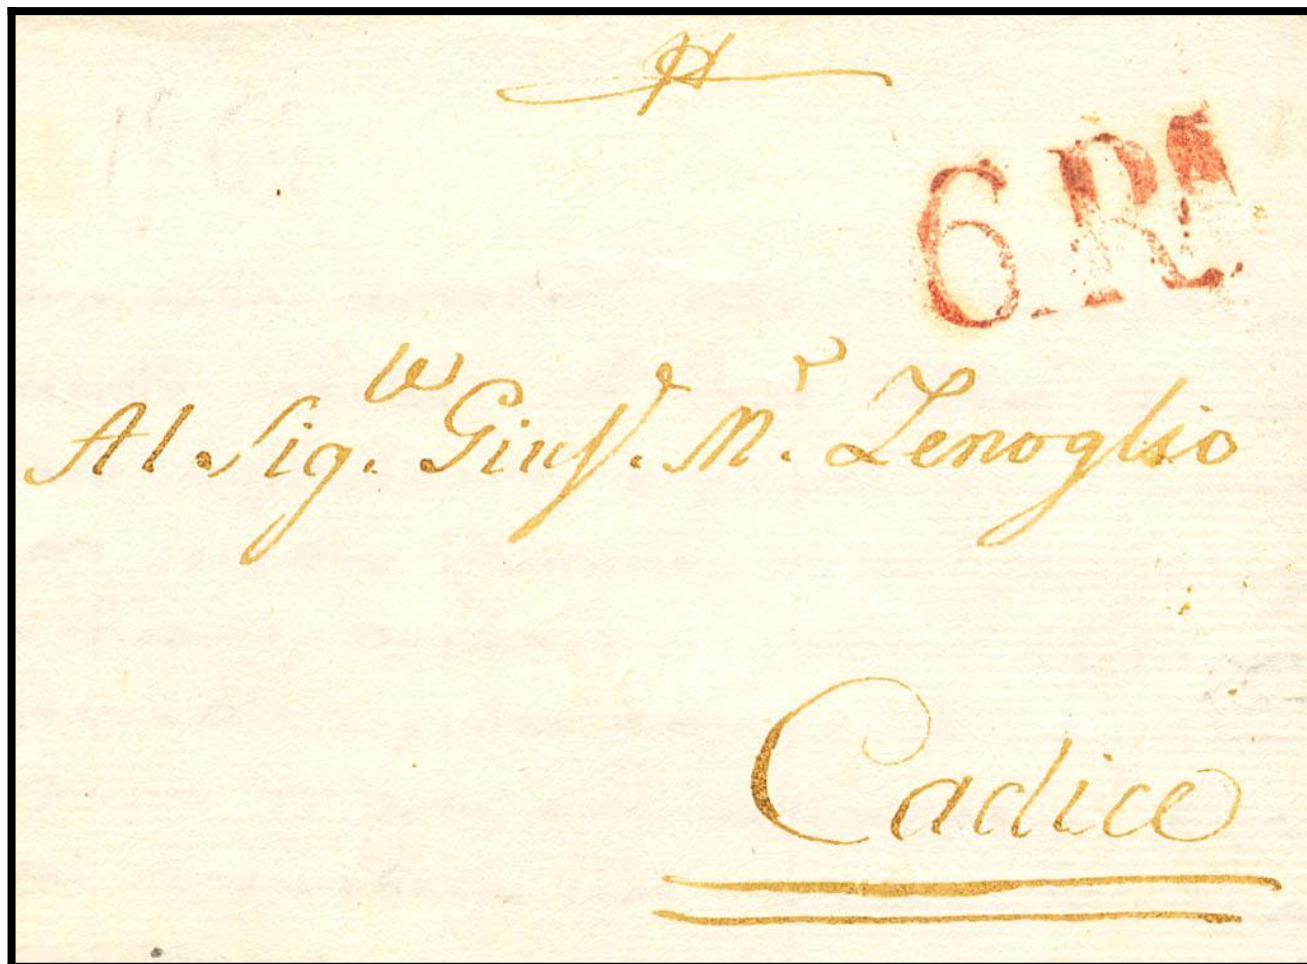 6.Rs
Al Sig.re Giuse. M.r Zenoglio
Cadice